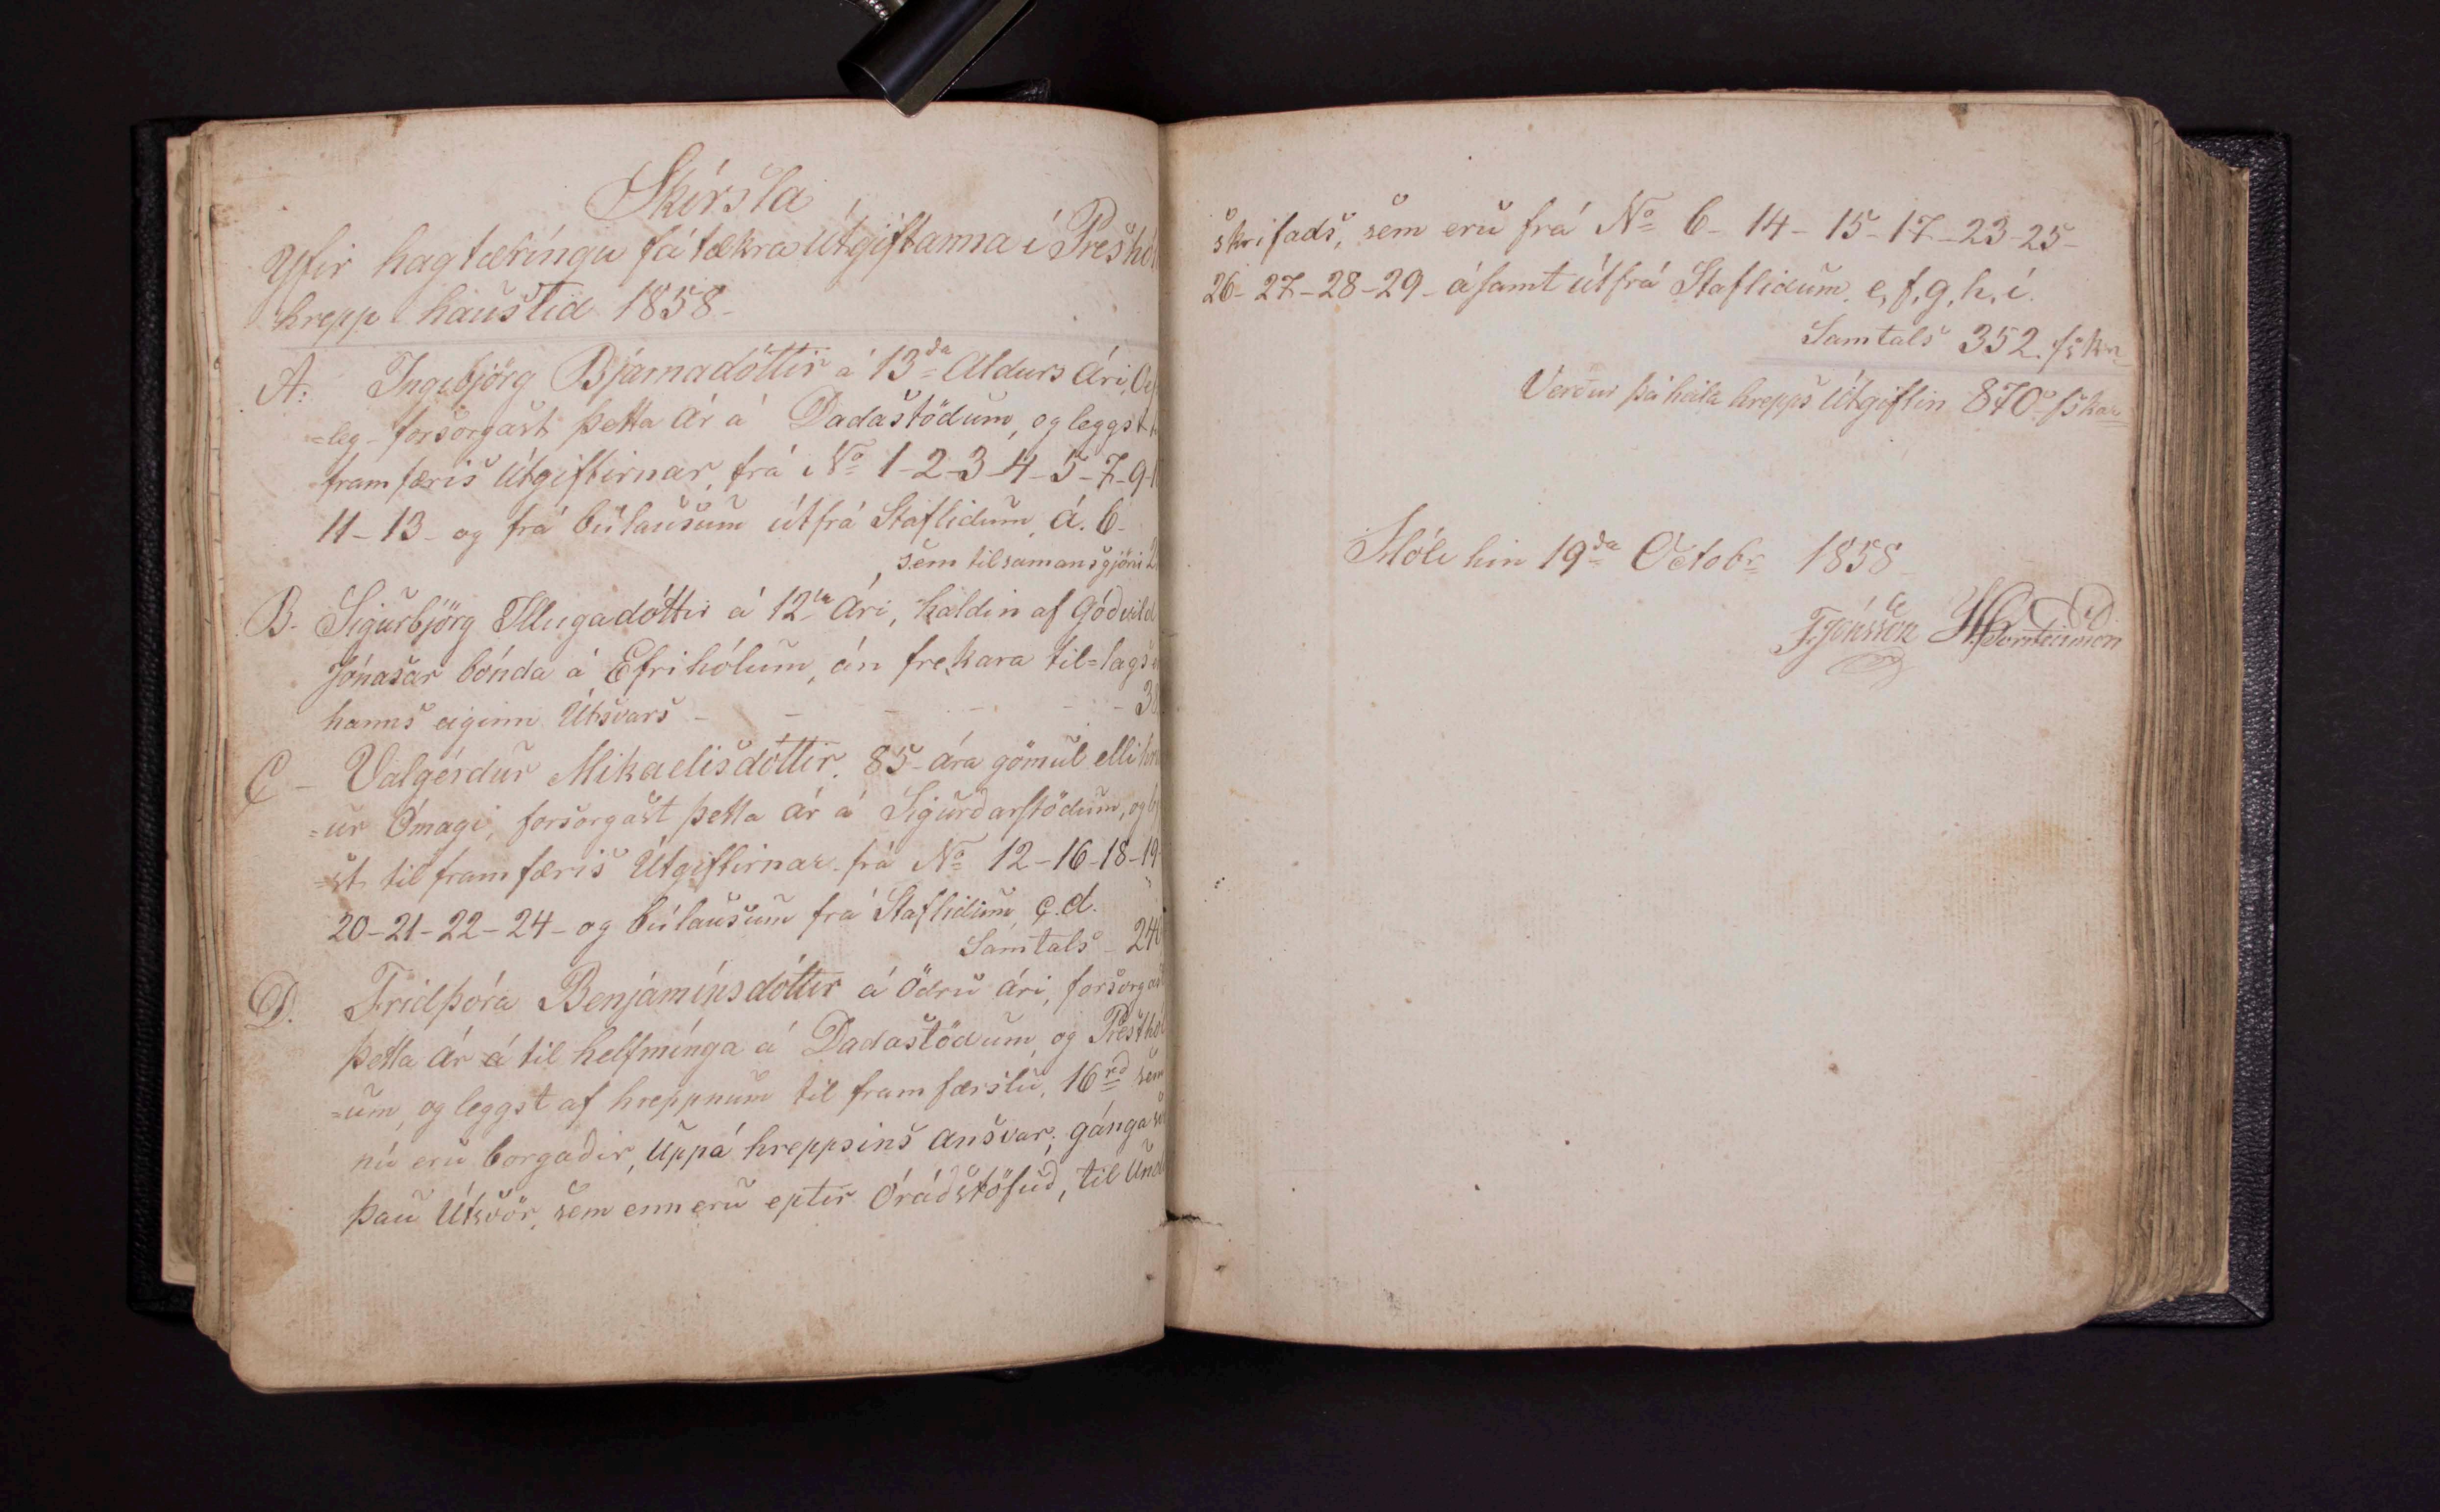 Skírsla
Yfir hagtæríngu fátækra Útgiftanna í Presthól
hrepp haustid 1858-
A: Ingibjörg Bjarnadóttir á 13da Aldurs Ári,
=leg- forsorgast þetta Ár á Dadastödum, og leggst
framfæris Útgiftirnar, frá No 1-2-3-4-5-7-9-
11-13- og frá búlausum útfrá Staflidum á. b-
sem til samans gjöri
B- Sigurbjörg Illugadóttir á 12ta Ári, haldin af Gódvild
Jónasar bónda á Efrihólum, án frekara til=lags
hanns eiginn Útsvars - - - - - 3
C- Valgérdur Mikaelisdóttir. 85- ára gömul elli
=ur Ómagi, forsorgast þetta ár á Sigurdarstödum, og
=st til framfæris Útgiftirnar frá No 12-16-18-19
20-21-22-24- og búlausum frá Staflidum c.d.
Samtals - 24
D. Fridþóra Benjamínsdóttir á ödru ári, forsorgast
þetta ár á til helfmínga á Dadastödum, og Presthól
=um, og leggst af hreppnum til framfærslu, 16rd sem
nú eru borgadir, Uppá hreppsins ansvar; gánga
þau Útsvör, sem enn eru eptir Órádstöfud, til Und
skrifads, sem eru frá No 6-14-15-17-23-25-
26-27-28-29- ásamt útfrá Staflidum. e, f, g, h, i.
Samtals 352. fskr
Verdur þá heila hrepps Útgiftin 870 fskar
Slóli hin 19da Octobr 1858-
J. Jónsson H. Þorsteinsson